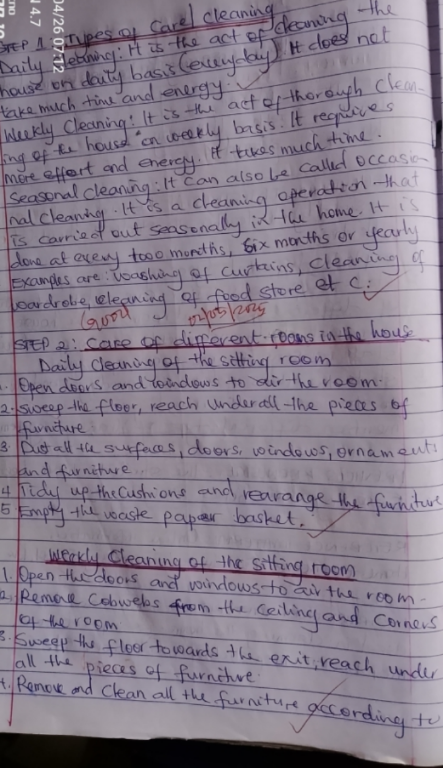 04/26 07:12
STEP 1 Types of Care/cleaning
Daily cleaning: It is the act of cleaning the
house on daily basis (everyday) It does not
take much time and energy.
Weekly Cleaning: It is the act of thorough clean-
ing of the house on weekly basis. It requires
more effort and energy. It takes much time.
Seasonal cleaning: It can also be called occasio-
nal cleaning. It is a cleaning operation that
is carried out seasonally in the home. It is
done at every two months, six months or yearly
Examples are: washing of curtains, cleaning of
wardrobe, cleaning of food store et c.
Good 02/05/2025
STEP 2: Care of different rooms in the house
Daily cleaning of the sitting room
1. Open doors and windows to air the room.
2. Sweep the floor, reach under all the pieces of
furniture
3 Dust all the surfaces, doors, windows, ornaments
and furniture
4 Tidy up the cushions and rearange the furniture
5 Empty the waste paper basket.
Weekly Cleaning of the sitting room
1. Open the doors and windows to air the room -
2. Remove cobwebs from the ceiling and corners
of the room
3. Sweep the floor towards the exit, reach under
all the pieces of furniture.
4. Remove and clean all the furniture according to